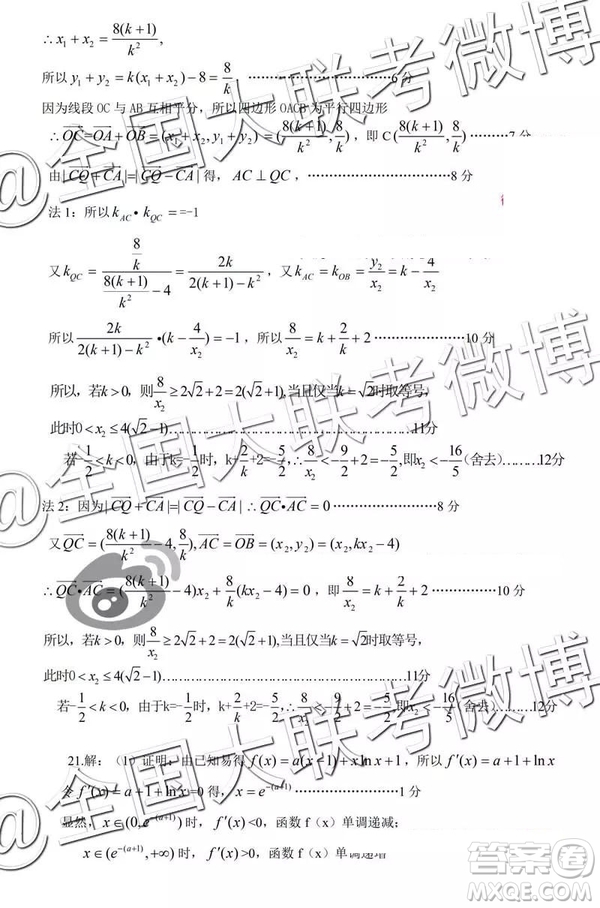 ∴x₁+x₂=8(k+1)/k²,
所以 y₁+y₂=k(x₁+x₂)-8=8/k. ……………………………6 分
因为线段 OC 与 AB 互相平分，所以四边形 OACB 为平行四边形
∴OC=OA+OB=(x₁+x₂,y₁+y₂)=(8(k+1)/k²,8/k)，即 C(8(k+1)/k²,8/k)………7 分
由|CQ+CA|=|CQ-CA|得，AC⊥QC，……………………………8 分
法 1：所以k_AC•k_QC==-1
又k_QC=(8/k)/(8(k+1)/k²-4)=2k/(2(k+1)-k²)，又k_AC=k_OB=y₂/x₂=k-4/
所以2k/(2(k+1)-k²)•(k-4/x₂)=-1，所以8/x₂=k+2/k+2…………………10 分
所以,若k>0，则8/x₂≥2√2+2=2(√2+1),当且仅当k=√2时取等号，
此时0<x₂≤4(√2-1)……………………………………11分
若-1/2<k<0，由于k=-1/2时，k+2/k+2=-5/2,∴8/x₂<-9/2+2=-5/2,即x₂<-16/5（舍去）………12分
法 2：因为|CQ+CA|=|CQ-CA| ∴QC•AC=0……………………8 分
又QC=(8(k+1)/k²-4,8/k),AC=OB=(x₂,y₂)=(x₂,kx₂-4)
∴QC•AC=(8(k+1)/k²-4)x₂+8/k(kx₂-4)=0，即8/x₂=k+2/k+2……………10 分
所以,若k>0，则8/x₂≥2√2+2=2(√2+1),当且仅当k=√2时取等号，
此时0<x₂≤4(√2-1)……………………………………11分
若-1/2<k<0，由于k=-1/2时，k+2/k+2=-5/2,∴8/x₂<-9/2+2=-5/2,即x₂<-16/5（舍去）………12分
21.解：（1）证明：由已知易得f(x)=a(x-1)+xln x+1，所以f′(x)=a+1+ln x
令f′(x)=a+1+ln x=0得，x=e^-(a+1)……………………1 分
显然，x∈(0,e^-(a+1))时，f′(x)<0，函数 f（x）单调递减；
x∈(e^-(a+1),+∞)时，f′(x)>0，函数 f（x）单调递增
@全国大联考微博
@全国大联考微博
答案卷
MXQE.COM